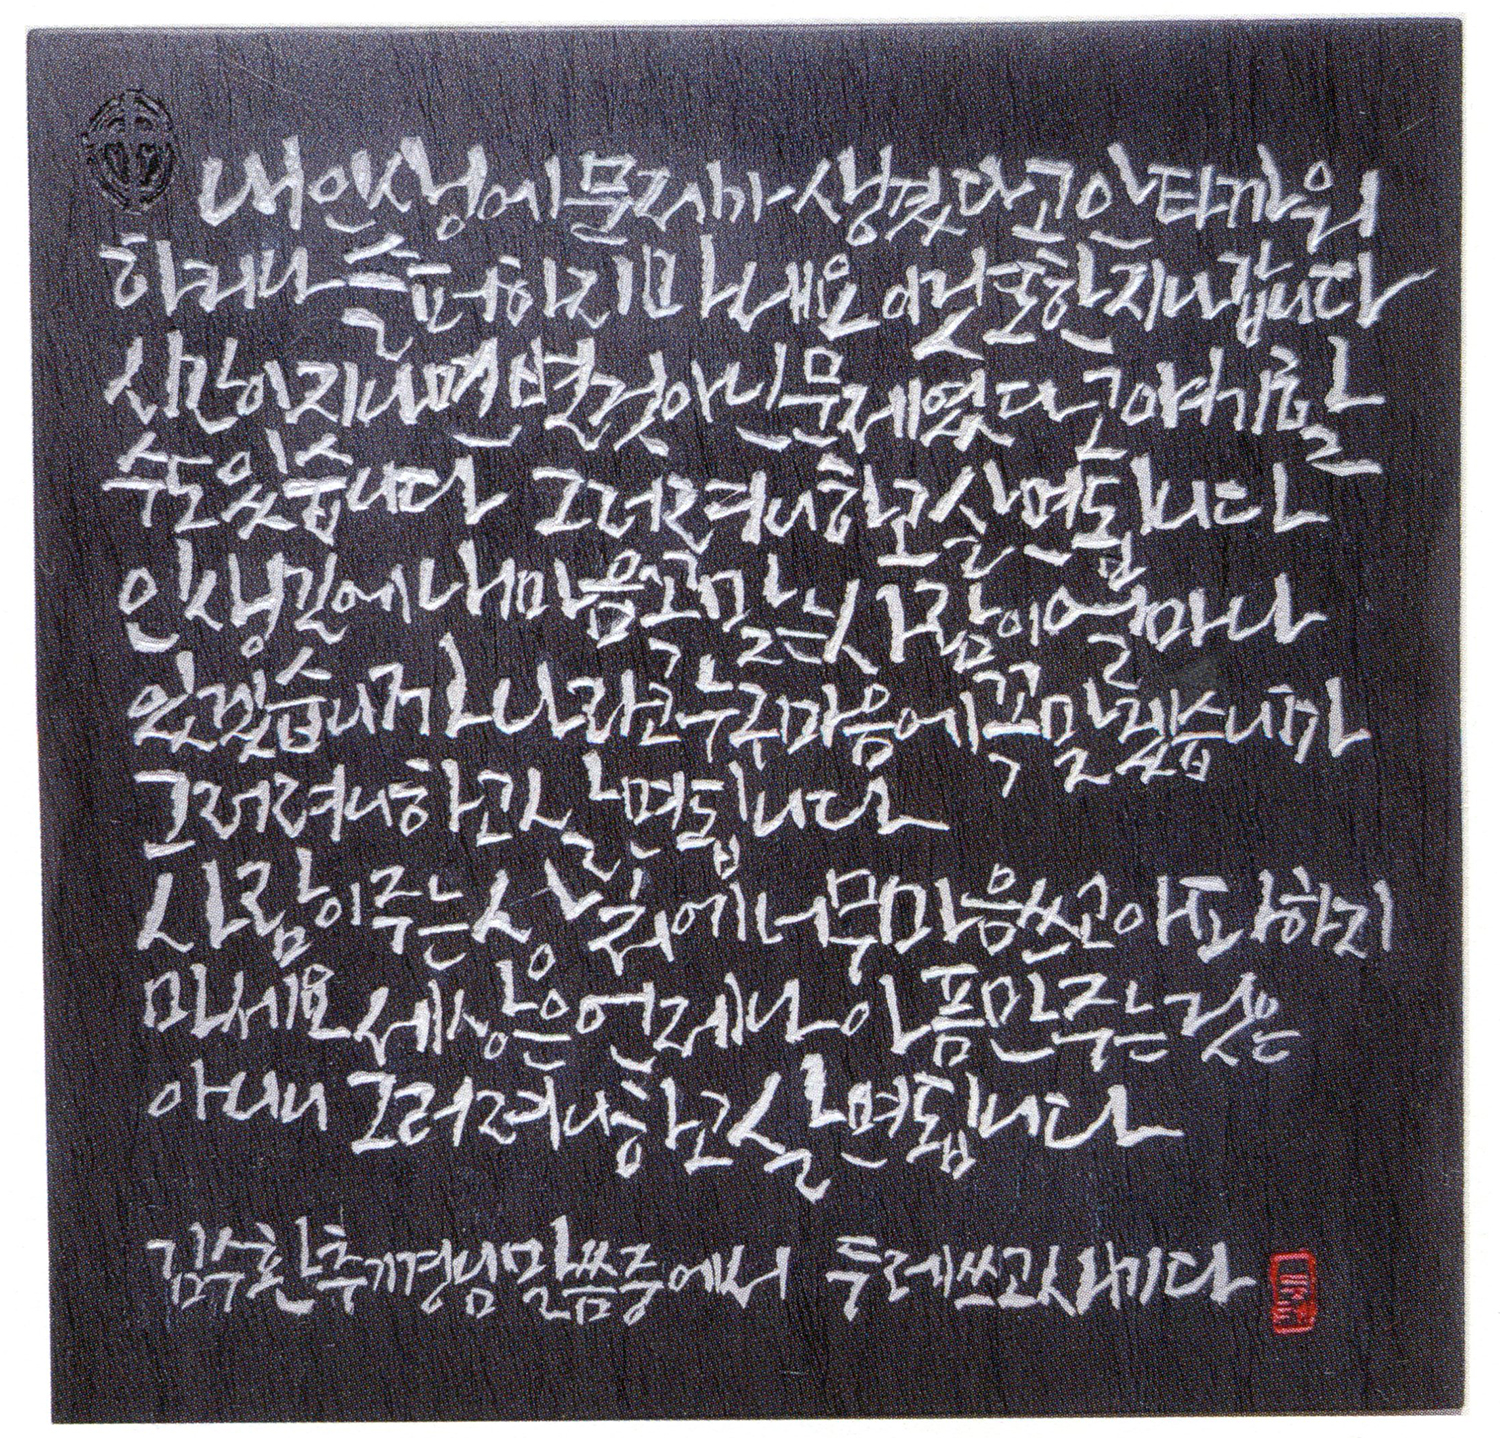 내 인생에 문제가 생겼다고 안타까워
하거나 슬퍼하지 마세요 또한 지나갑니다
시간이 지나면 별것 아닌 문제였다고 이야기 할
수 있습니다 그러려니 하고 살면 됩니다
인생길에 내 마음 꼭 맞는 사람이 얼마나
있겠습니까 나라고 누구 마음에 꼭 맞겠습니까
그러려니 하고 살면 됩니다
사람이 주는 상처에 너무 마음 쓰고 아파하지
마세요 세상은 언제나 아픔만 주는 것은
아니니 그러려니 하고 살면 됩니다
김수환 추기경님 말씀 중에서 두레 쓰고 새기다